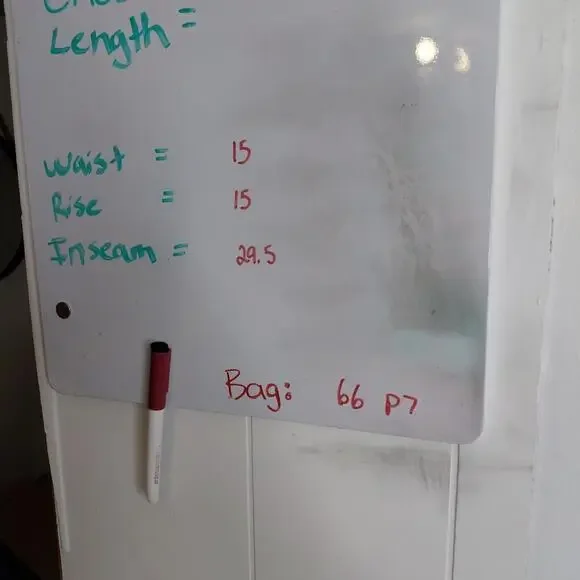 Length =
Waist = 15
Rise = 15
Inseam = 29.5
Bag: 66 P7